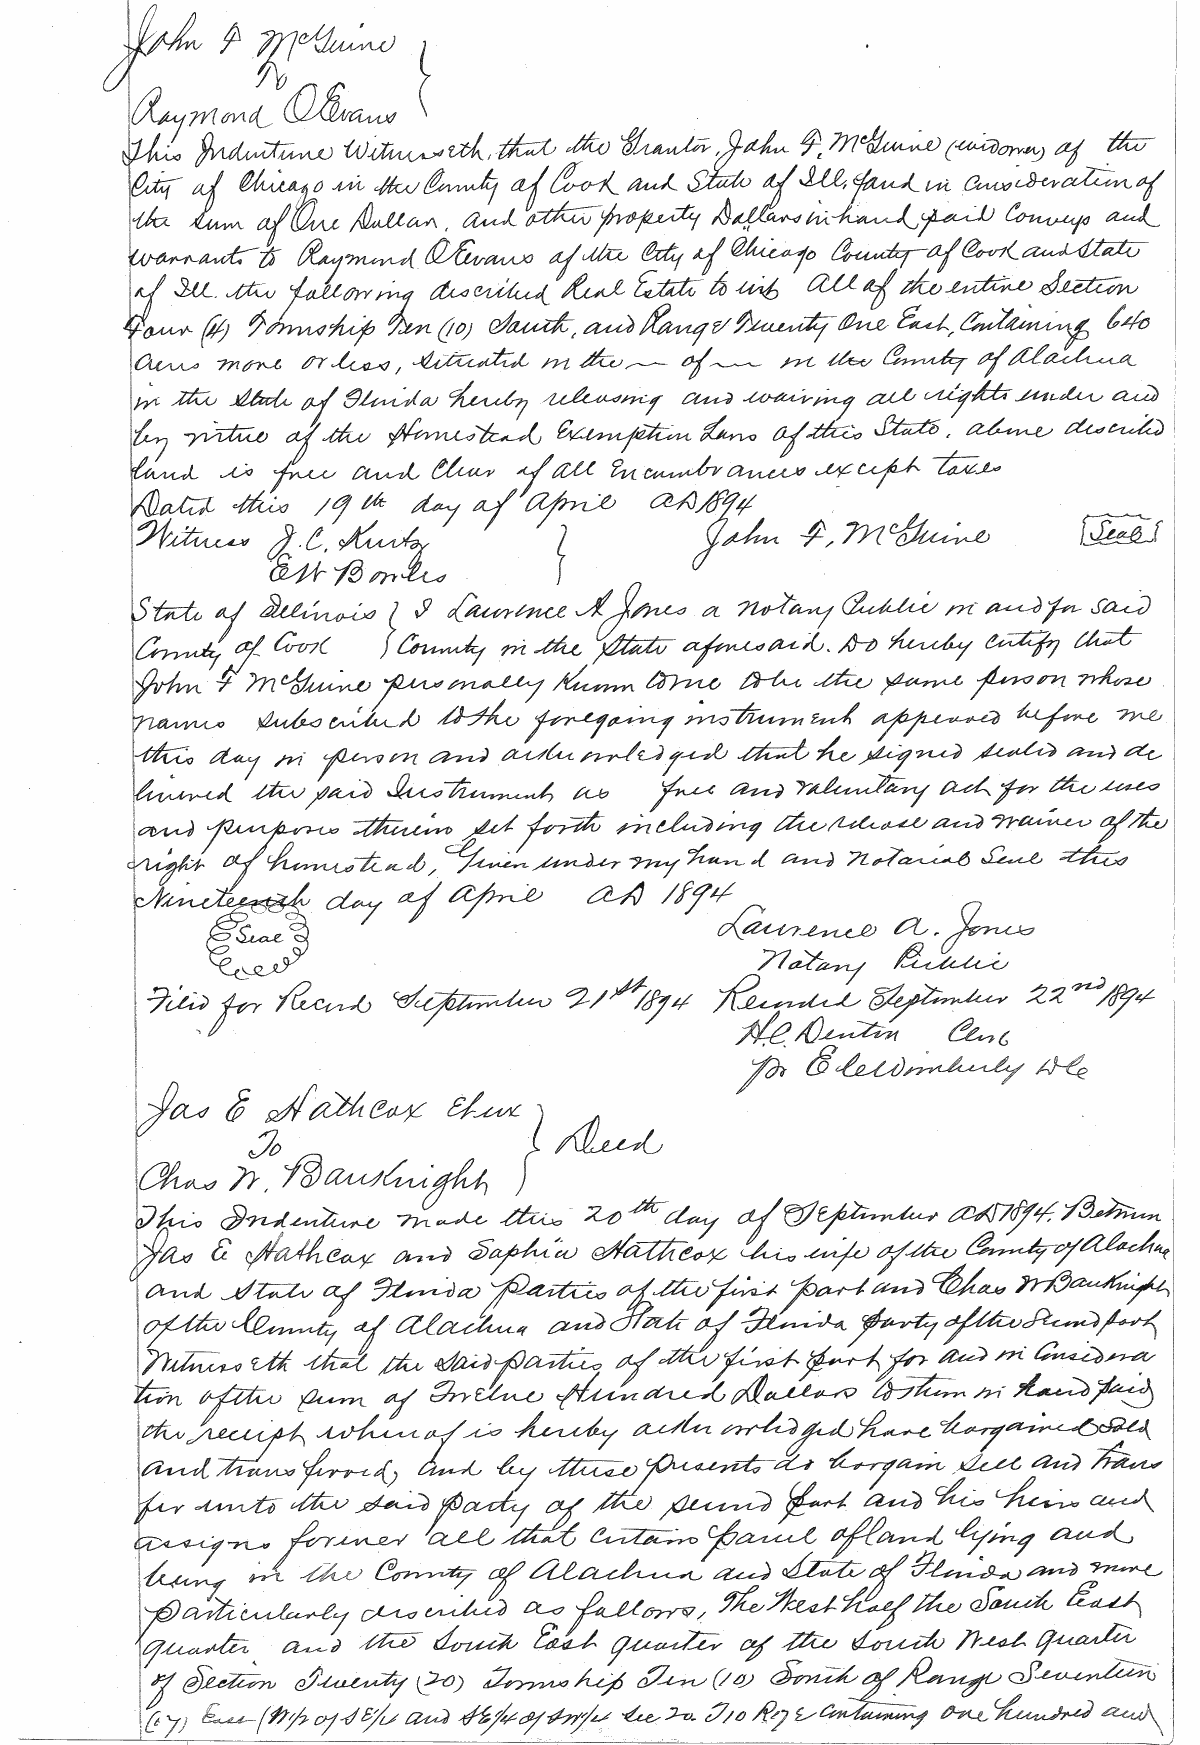 John F McGuire
To
Raymond O Evans
This Indenture Witnesseth, that the Grantor, John F. McGuire (widower) of the
City of Chicago in the County of Cook and State of Ill, for and in Consideration of
the sum of One Dollar, and other property Dollars in hand paid Conveys and
warrants to Raymond O Evans of the City of Chicago County of Cook and State
of Ill. the following described Real Estate to wit All of the entire Section
Four (4) Township Ten (10) South, and Range Twenty One East, Containing 640
Acres more or less, situated in the — of — in the County of Alachua
in the State of Florida hereby releasing and waiving all rights under and
by virtue of the Homestead Exemption Laws of this State, above described
land is free and Clear of all Encumbrances except taxes
Dated this 19th day of April AD 1894
Witness J. C. Kurtz John F. McGuire Seal
E W Bowles
State of Illinois } I Lawrence A Jones a Notary Public in and for said
County of Cook } County in the State aforesaid. Do hereby certify that
John F McGuire personally Known to me to be the same person whose
names subscribed to the foregoing instrument appeared before me
this day in person and acknowledged that he signed sealed and de
livered the said Instrument as free and voluntary act for the uses
and purposes therein set forth including the release and waiver of the
right of homestead, Given under my hand and Notarial Seal this
Nineteenth day of April AD 1894
Seal Lawrence A. Jones
Notary Public
Filed for Record September 21st 1894 Recorded September 22nd 1894
H.C. Denton Clerk
pr E C Wimberly DC
Jas E Hathcox Et ux
To } Deed
Chas W. Bauknight
This Indenture made this 20th day of September AD 1894. Between
Jas E Hathcox and Sophia Hathcox his wife of the County of Alachua
and State of Florida parties of the first part and Chas W Bauknight
of the County of Alachua and State of Florida party of the second part
Witnesseth that the said parties of the first part for and in Considera
tion of the sum of Twelve Hundred Dollars to them in hand paid
the receipt whereof is hereby acknowledged have bargained sold
and transferred, and by these presents do bargain sell and trans
fer unto the said party of the second part and his heirs and
assigns forever all that certain parcel of land lying and
being in the County of Alachua and State of Florida and more
particularly described as follows, The West half the South East
quarter and the South East quarter of the South West quarter
of Section Twenty (20) Township Ten (10) South of Range Seventeen
(17) East (W1/2 of SE1/4 and SE1/4 of SW1/4 Sec 20 T10 R17 E Containing one hundred and